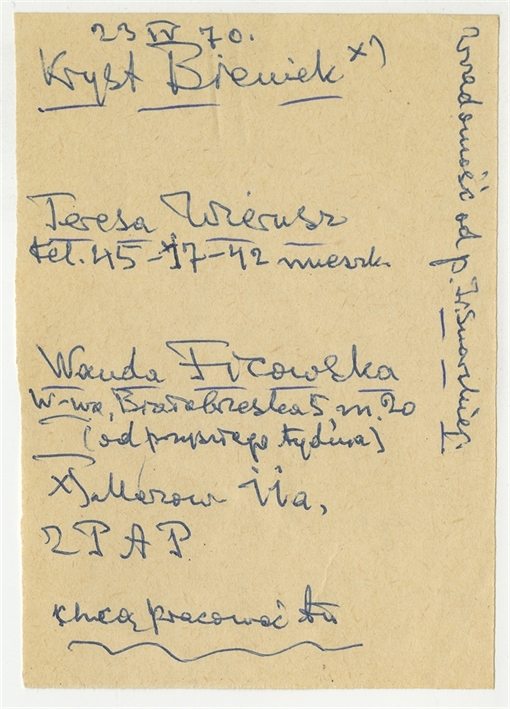 23 IV 70.
Kryst Bieniek x)
Teresa Wierusz
tel. 45-17-42 mieszk.
Wanda Ficowska
W-wa, Białobrzeska 5 m. 20
(od przyszłego tygodnia)
x) Mazow 11a,
ZPAP
chcą pracować tu
Wiadomość od p.